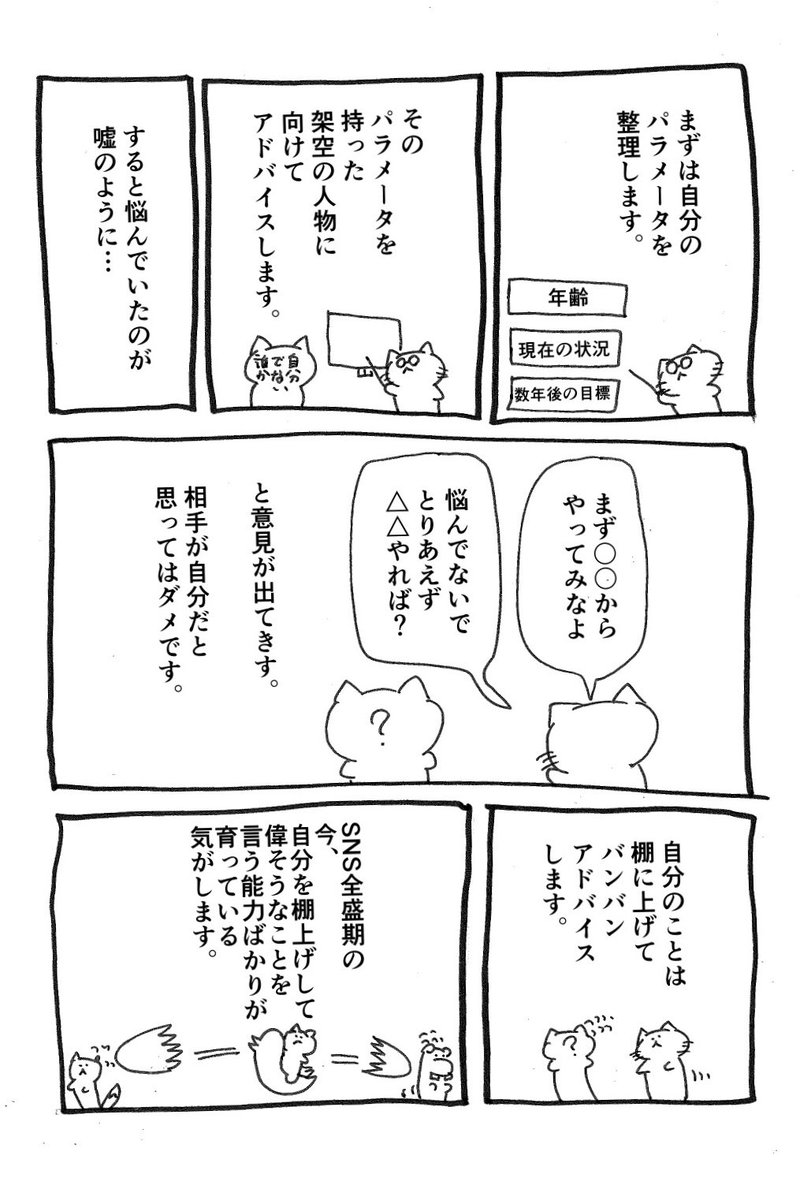 まずは自分の
パラメータを
整理します。
年齢
現在の状況
数年後の目標
その
パラメータを
持った
架空の人物に
向けて
アドバイスします。
自分
でない
誰か
すると悩んでいたのが
嘘のように…
まず○○から
やってみなよ
悩んでないで
とりあえず
△△やれば?
と意見が出てきす。
相手が自分だと
思ってはダメです。
?
自分のことは
棚に上げて
バンバン
アドバイス
します。
?
SNS全盛期の
今、
自分を棚上げして
偉そうなことを
言う能力ばかりが
育っている
気がします。